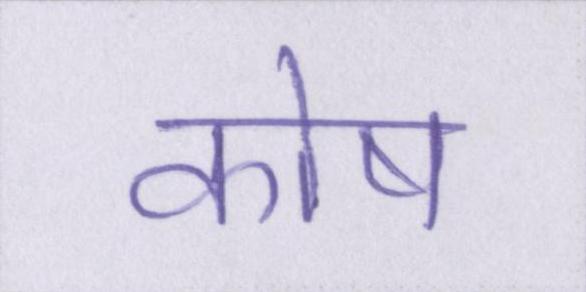 कोष